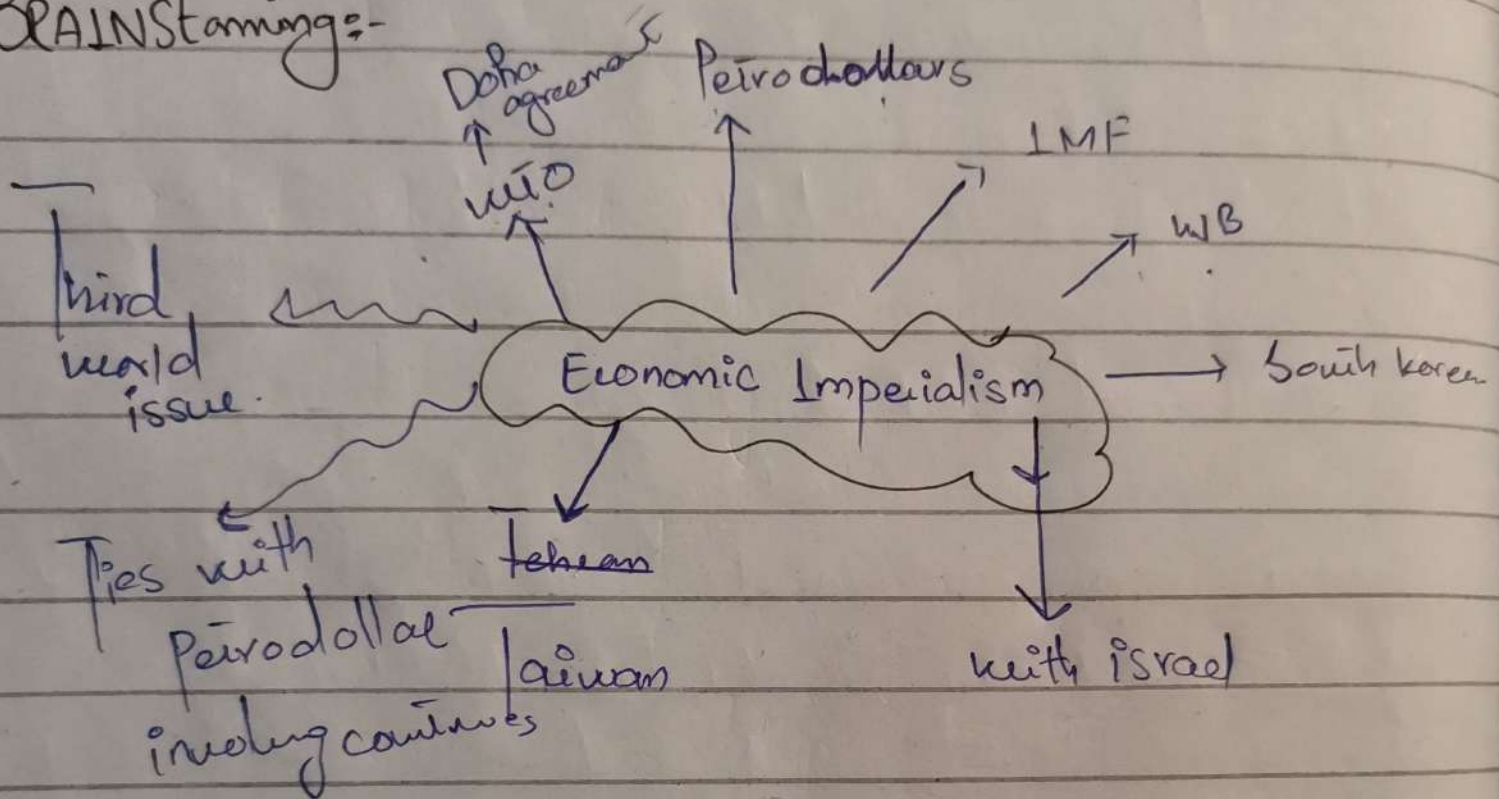 BRAINStorming:-
Doha
agreement
Petrodollars
IMF
WTO
WB
Third
world
issue.
Economic Imperialism
South korea
Ties with
Petrodollar
involving countries
Tehran
Taiwan
with israel